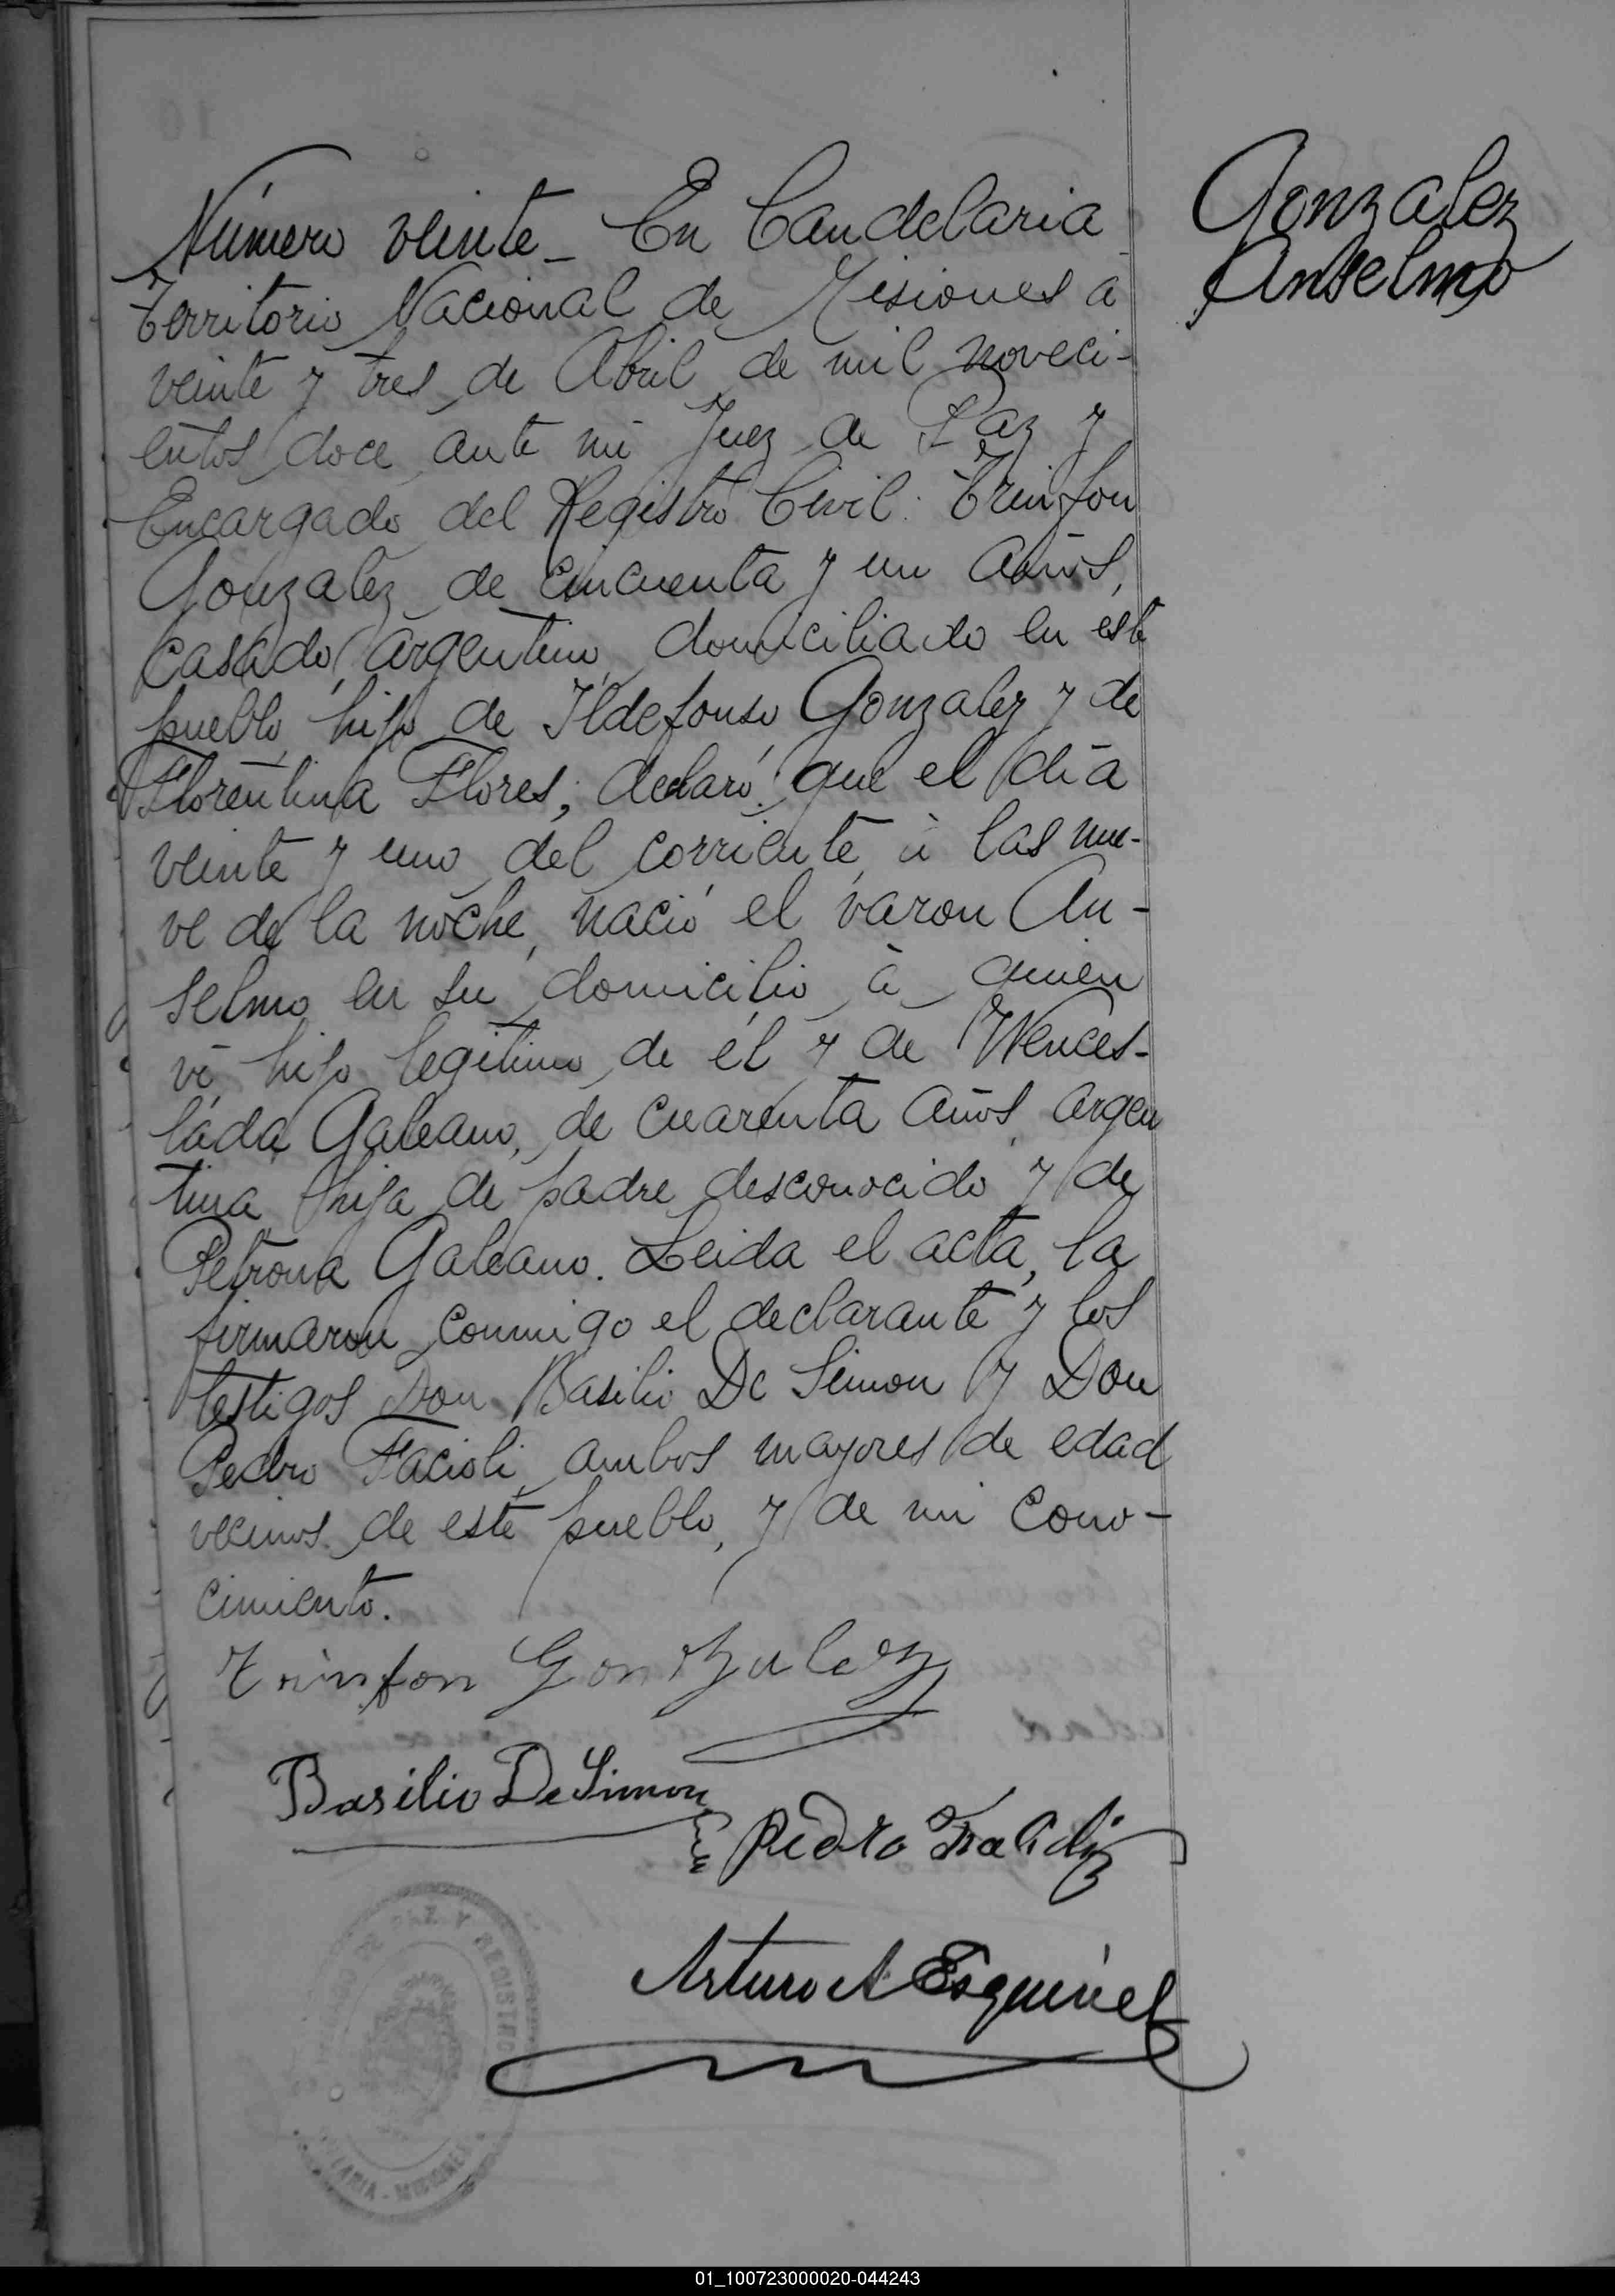 Gonzalez
Anselmo
Número veinte_ En Candelaria
Territorio Nacional de Misiones a
veinte y tres de Abril de mil noveci-
entos doce ante mi Juez de Paz y
Encargado del Registro Civil: Trinfon
Gonzalez de cincuenta y un años,
casado, argentino, domiciliado en este
pueblo, hijo de Ildefonso Gonzalez y de
Florentina Flores; declaró: que el día
veinte y uno del corriente, à las nue-
ve de la noche, nació el varon An-
selmo en su domicilio à quien
ví hijo legítimo de él y de Wences-
láda Galeano, de cuarenta años, argen
tina hija de padre desconocido y de
Petrona Galeano. Leida el acta, la
firmaron conmigo el declarante y los
testigos Don Basilio De Simon y Don
Pedro Facioli, ambos mayores de edad
vecinos de este pueblo, y de mi cono-
cimiento.
Trinfon Gonzalez
Basilio De Simon
Pedro
Arturo A Esquivel
DE PAZ Y REGISTRO
MISIONES
01_100723000020-044243